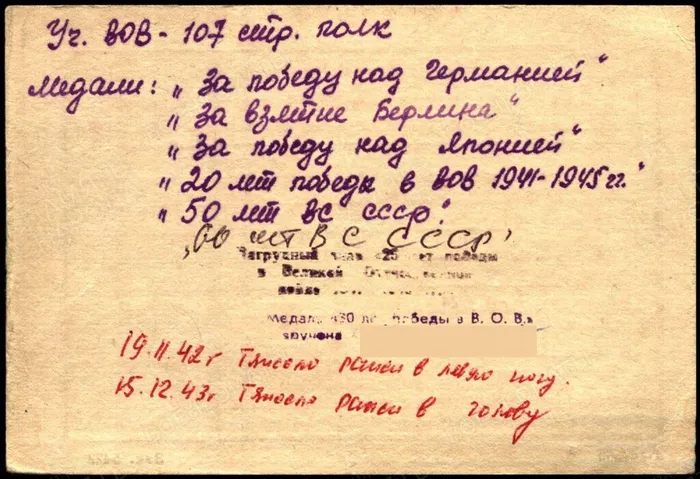 Уч. ВОВ - 107 стр. полк
Медали: „За победу над Германией"
„За взятие Берлина"
„За победу над Японией"
„20 лет победы в ВОВ 1941-1945 гг."
„50 лет ВС СССР".
„60 лет ВС СССР"
Нагрудный знак «25 лет победы
в Великой Отечественной
войне
Медаль «30 лет победы в В. О. В.»
вручена
19.11.42г Тяжело ранен в левую ногу.
15.12.43г Тяжело ранен в голову